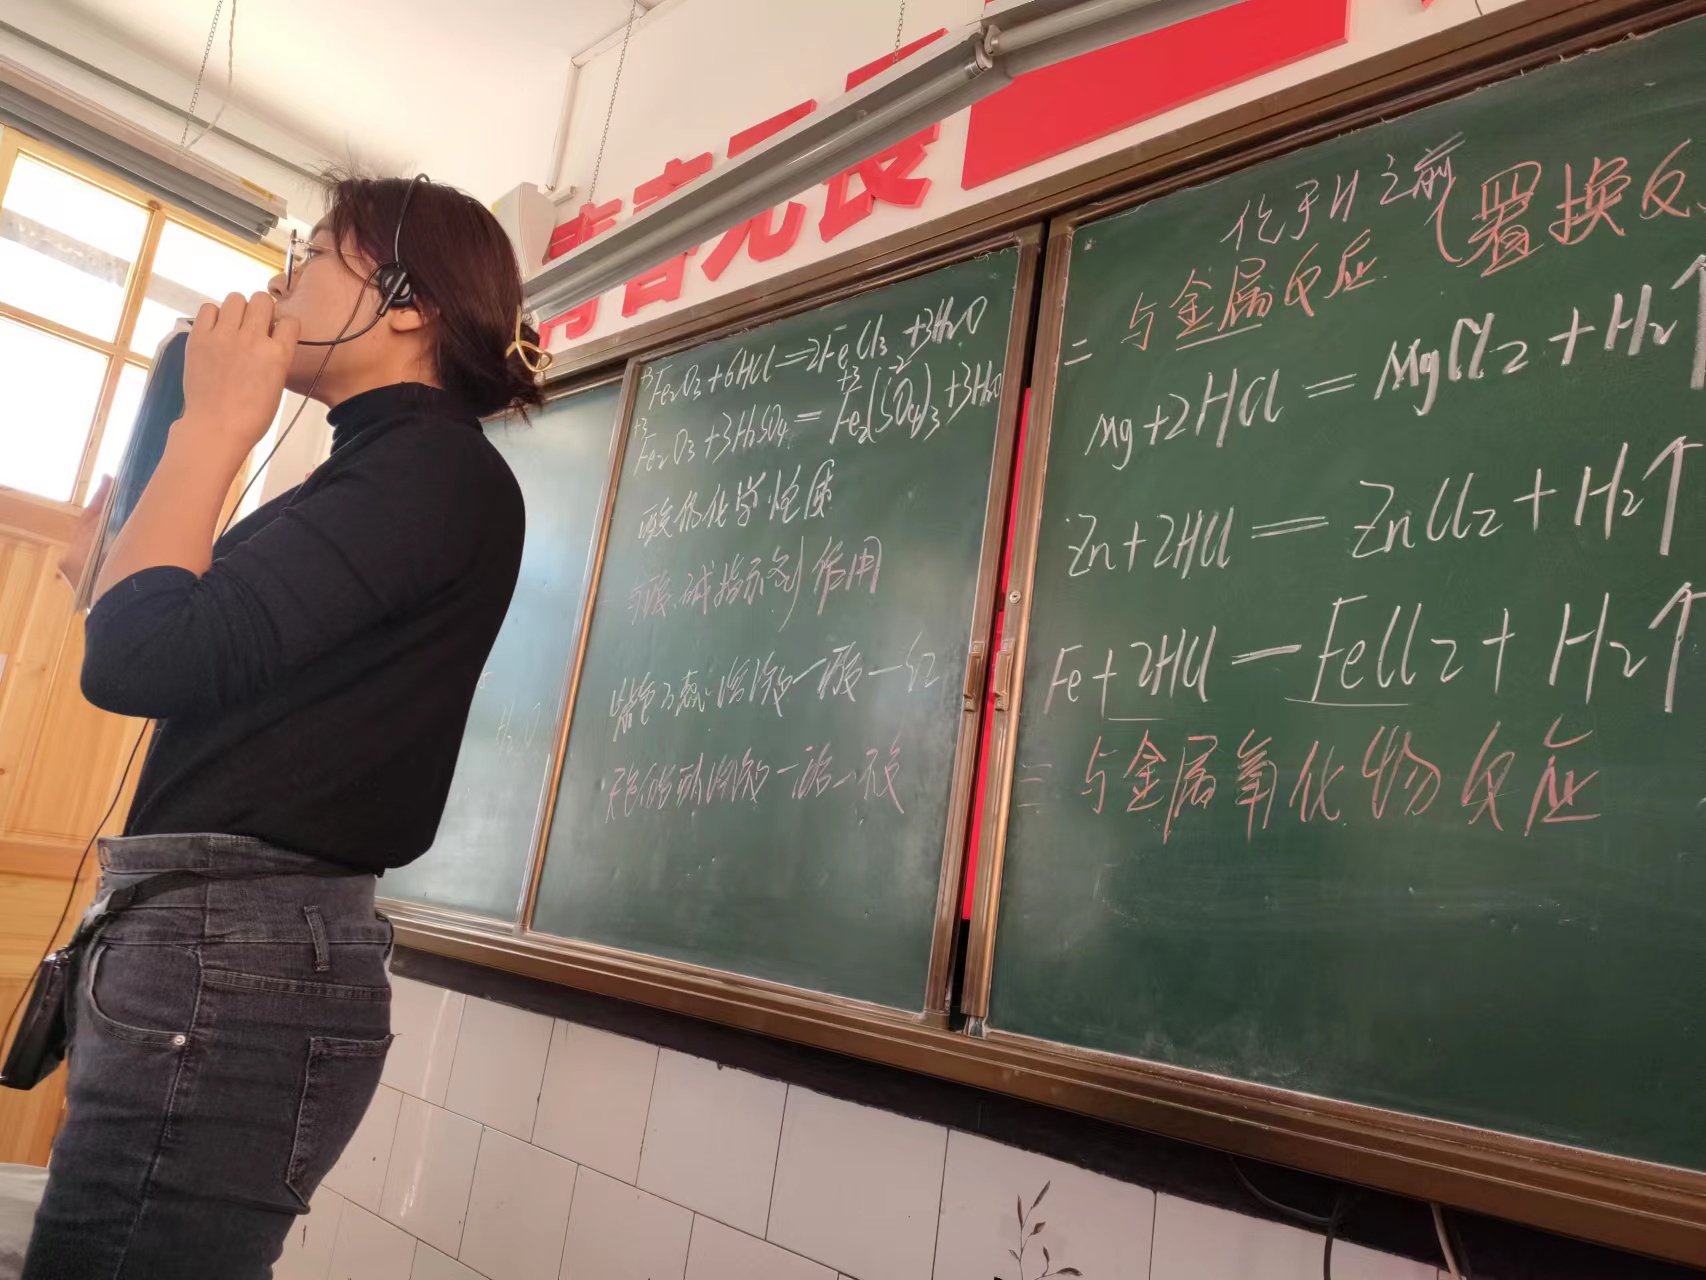 青春无畏
Fe₂O₃+6HCl=2FeCl₃+3H₂O
Fe₂O₃+3H₂SO₄=Fe₂(SO₄)₃+3H₂O
酸的化学性质
与酸碱指示剂作用
紫色石蕊溶液一酸一红
无色酚酞溶液一酸一不变
H₂O
位于H之前
二与金属反应(置换反
Mg+2HCl=MgCl₂+H₂↑
Zn+2HCl=ZnCl₂+H₂↑
Fe+2HCl—FeCl₂+H₂↑
三与金属氧化物反应